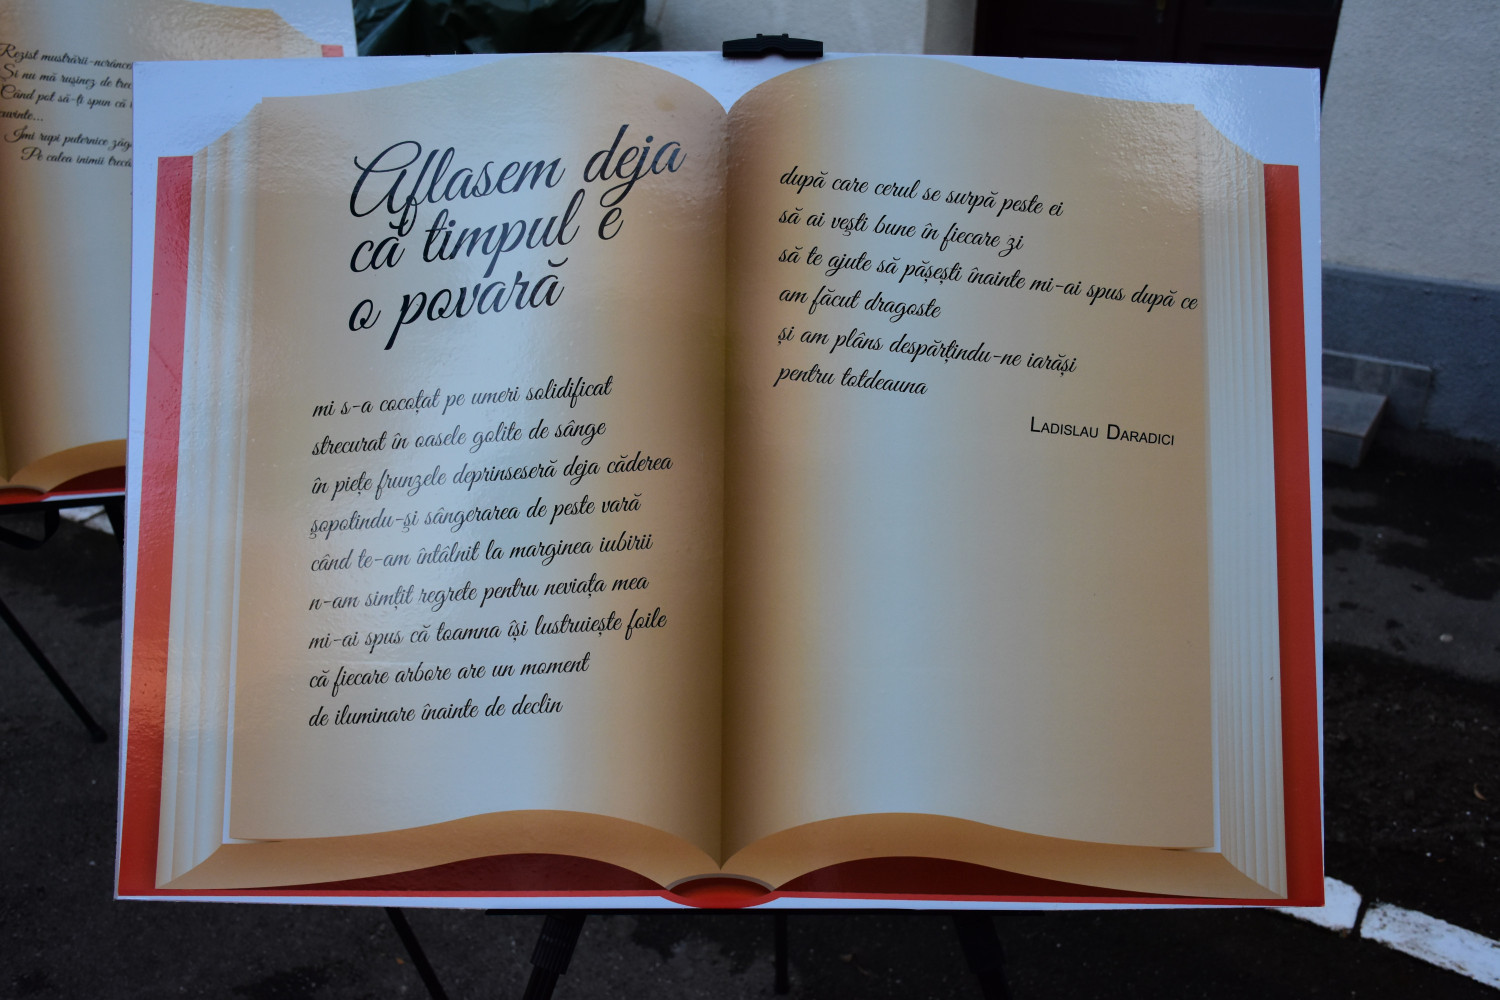 Rezist mustrării-ncrânce
Și nu mă rușinez de trec
Când pot să-ți spun că i
cuvinte...
Îmi rupi puternice zăg
Pe calea inimii trecă
Aflasem deja
că timpul e
o povară
mi s-a cocoțat pe umeri solidificat
strecurat în oasele golite de sânge
în piețe frunzele deprinseseră deja căderea
şopotindu-şi sângerarea de peste vară
când te-am întâlnit la marginea iubirii
n-am simțit regrete pentru neviața mea
mi-ai spus că toamna își lustruiește foile
că fiecare arbore are un moment
de iluminare înainte de declin
după care cerul se surpă peste ei
să ai veşti bune în fiecare zi
să te ajute să pășești înainte mi-ai spus după ce
am făcut dragoste
și am plâns despărțindu-ne iarăși
pentru totdeauna
Ladislau Daradici